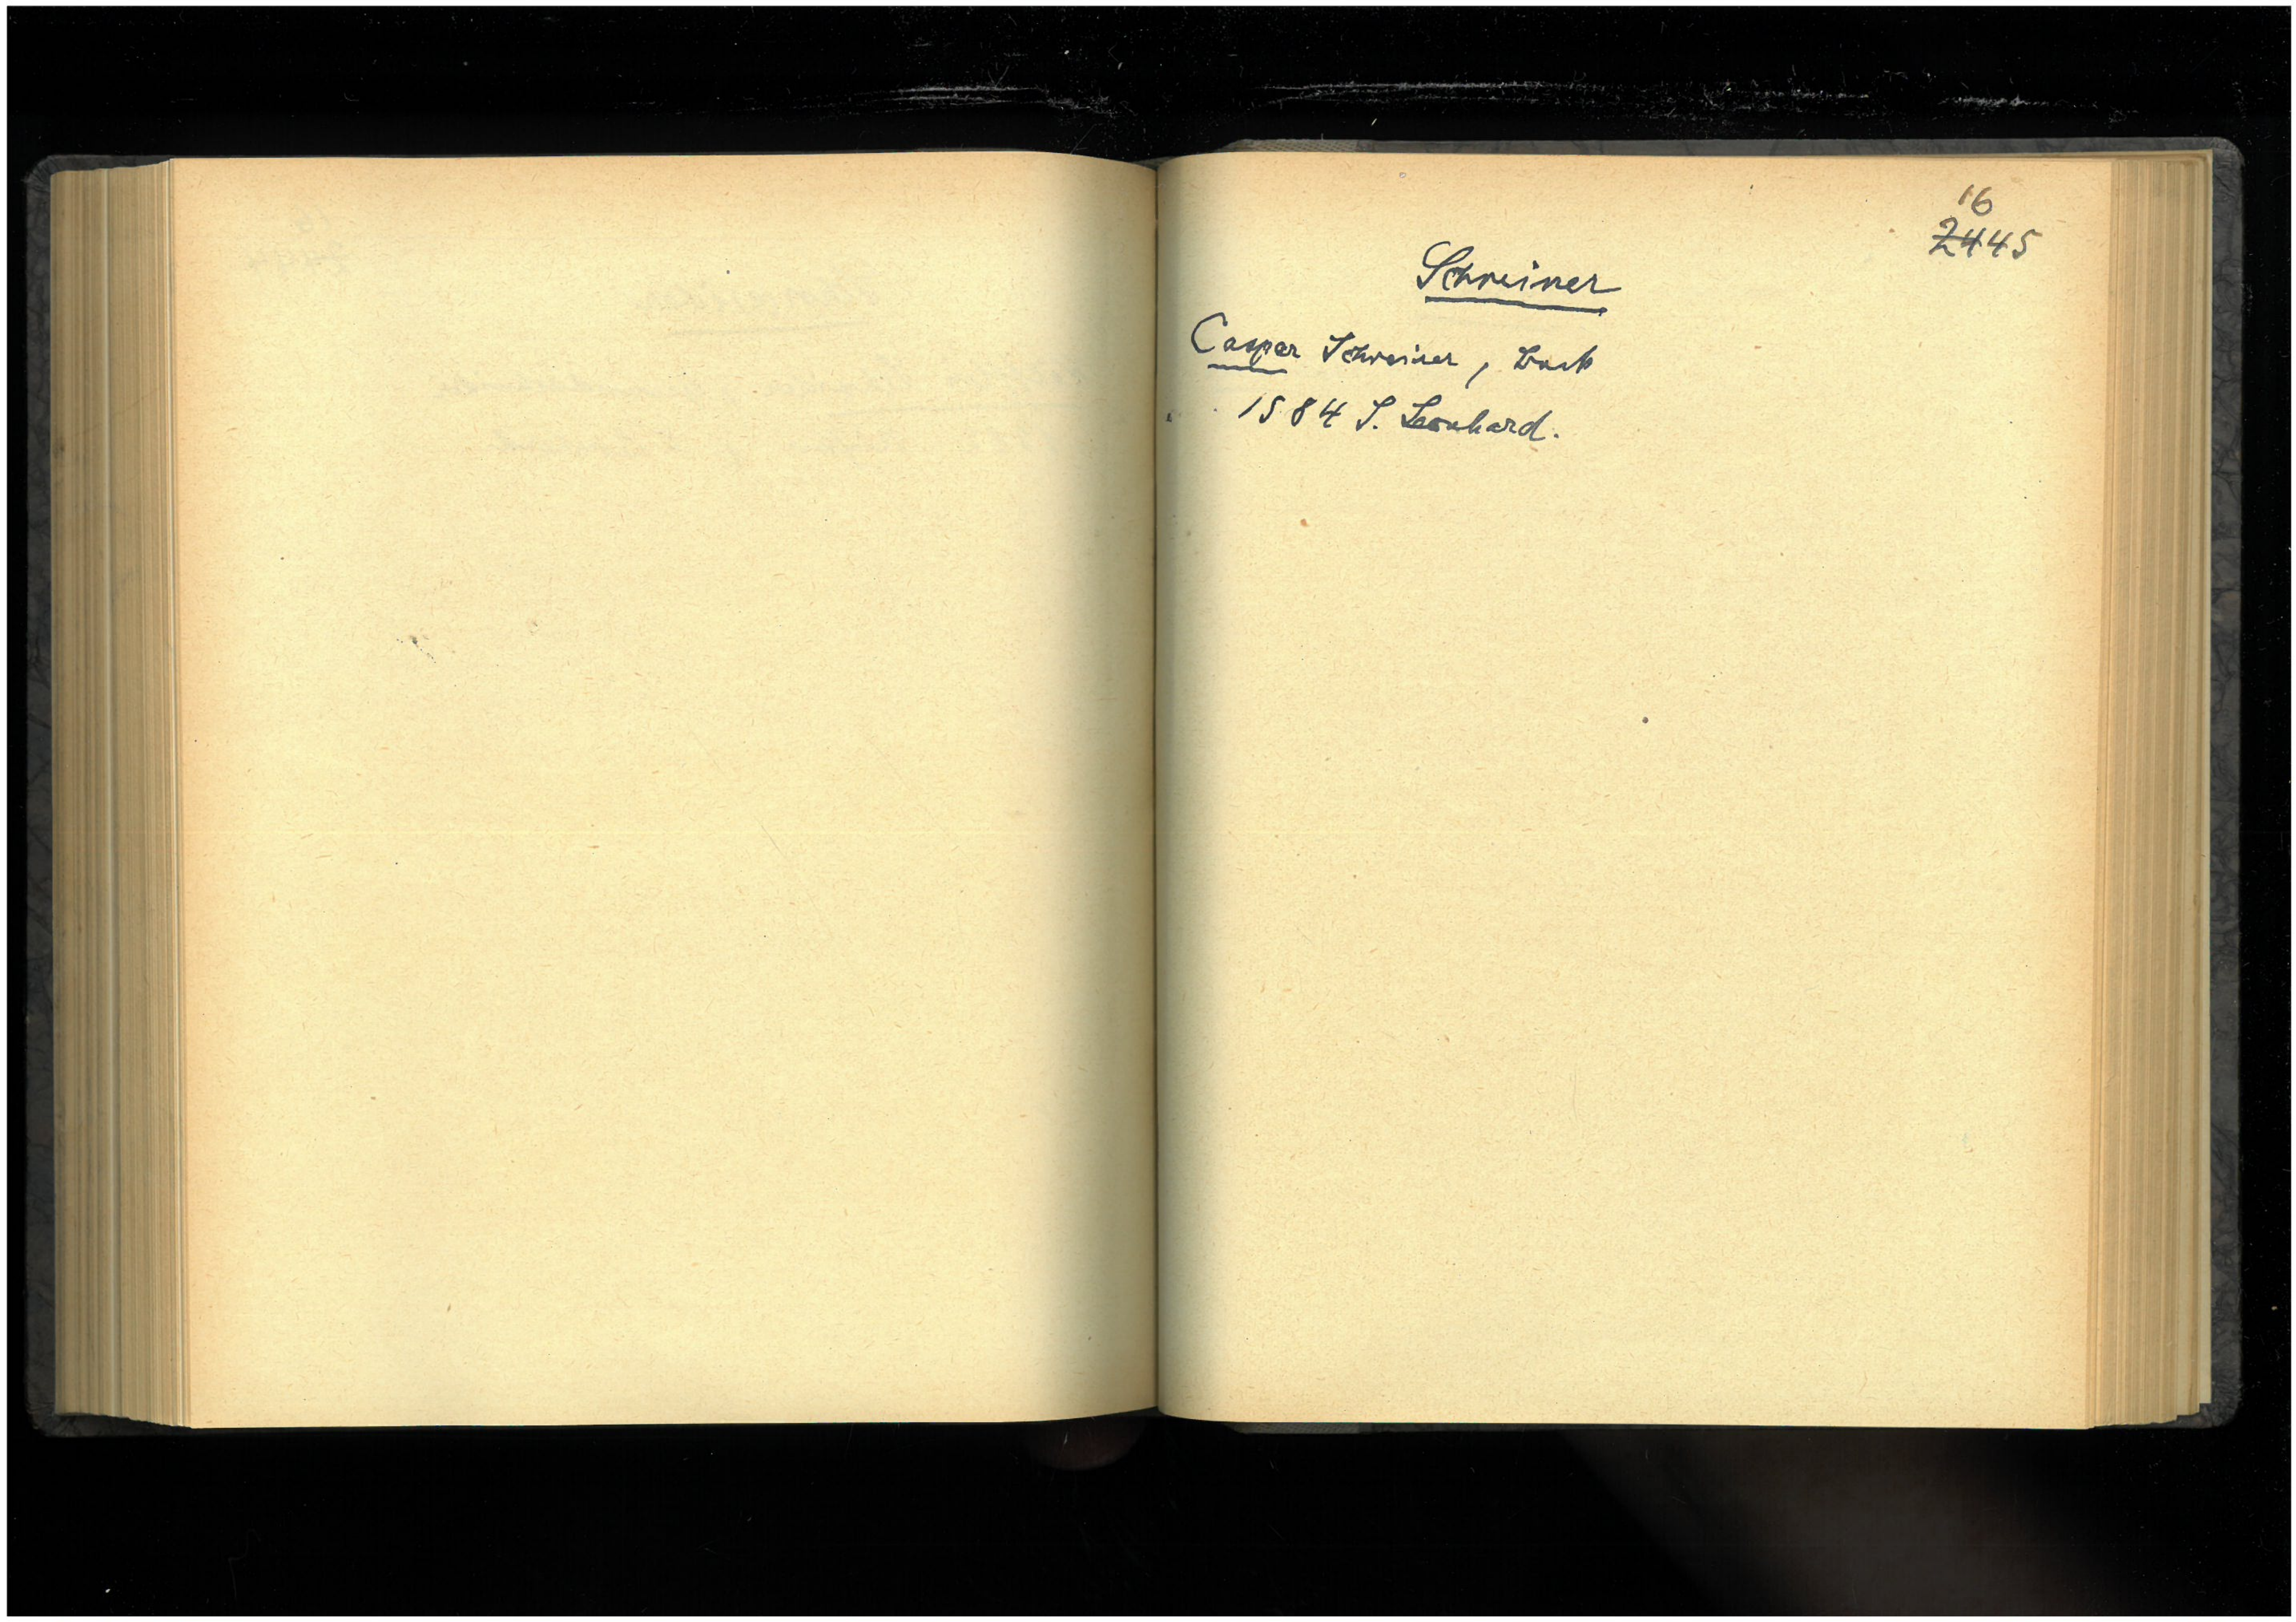 16
2445
Schreiner
Casper Schreiner,
1584 S. Leonhard.